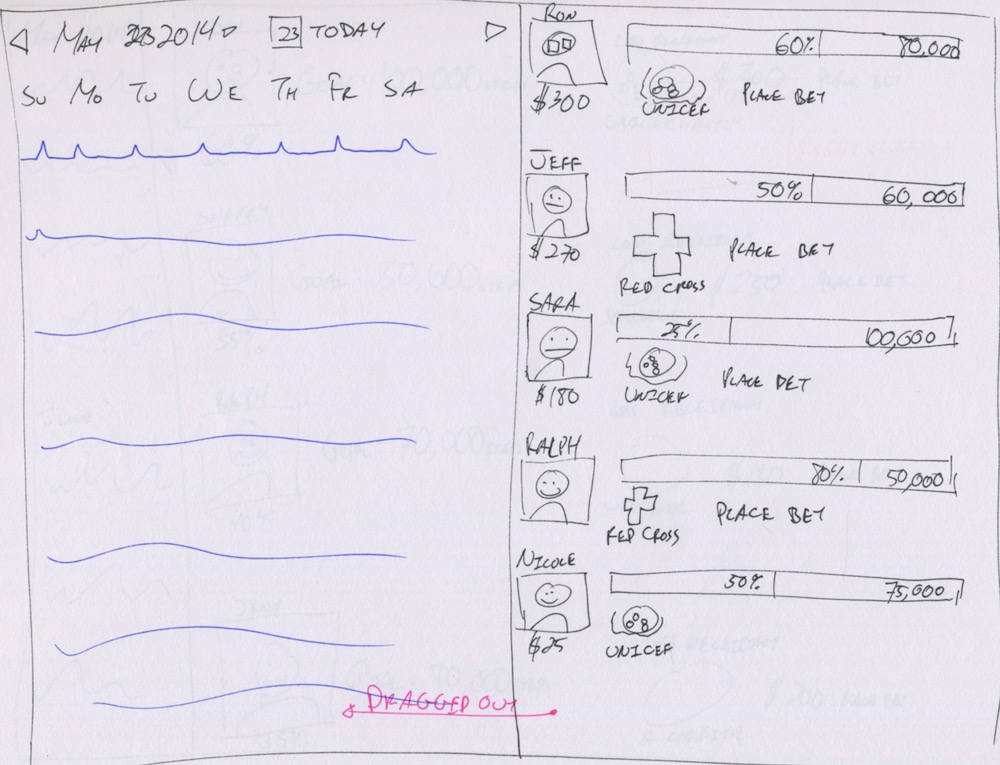 MAY 23 2014
23 TODAY
SU MO TU WE TH FR SA
DRAGGED OUT
RON
60% 80,000
$300
UNICEF
PLACE BET
JEFF
50% 60,000
$270
RED CROSS
PLACE BET
SARA
25% 100,000
$180
UNICEF
PLACE BET
RALPH
80% 50,000
RED CROSS
PLACE BET
NICOLE
50% 75,000
$25
UNICEF